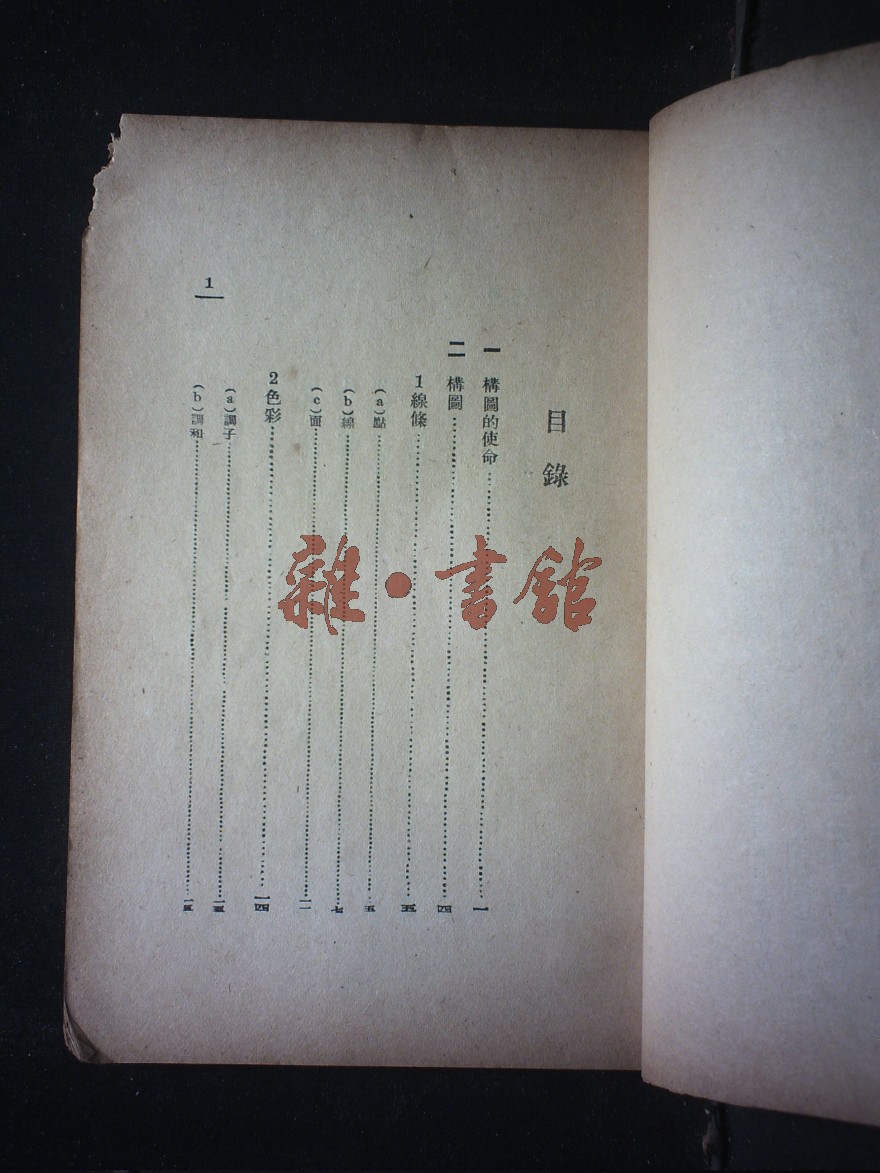 目錄
一 構圖的使命……一
二 構圖……四
1線條……五
(a)點……五
(b)線……七
(c)面……一一
2色彩……一四
(a)調子……一五
(b)調和……一五
1
雜·書館